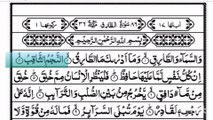 اٰیاتها ١٧ ٨٦ سُوْرَةُ الطَّارِقِ مَكِّيَّةٌ ٣٦ رکوعها ١
بِسْمِ اللّٰهِ الرَّحْمٰنِ الرَّحِيْمِ
وَالسَّمَآءِ وَالطَّارِقِ وَمَآ اَدْرٰىكَ مَا الطَّارِقُ النَّجْمُ الثَّاقِبُ
اِنْ كُلُّ نَفْسٍ لَّمَّا عَلَيْهَا حَافِظٌ فَلْيَنْظُرِ الْاِنْسَانُ مِمَّ خُلِقَ خُلِقَ
مِنْ مَّآءٍ دَافِقٍ يَّخْرُجُ مِنْۢ بَيْنِ الصُّلْبِ وَالتَّرَآئِبِ اِنَّهٗ عَلٰى
رَجْعِهٖ لَقَادِرٌ يَوْمَ تُبْلَى السَّرَآئِرُ فَمَا لَهٗ مِنْ قُوَّةٍ وَّلَا